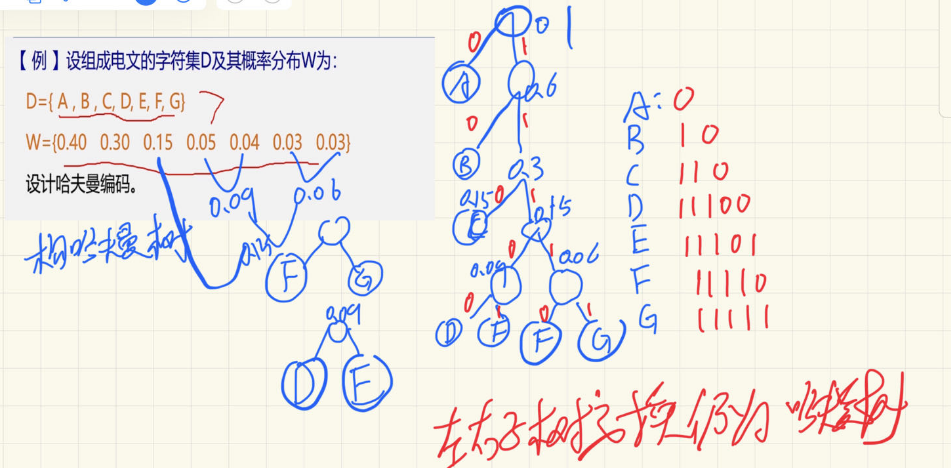 【例】设组成电文的字符集D及其概率分布W为：
D={ A , B , C, D, E, F, G}
W={0.40 0.30 0.15 0.05 0.04 0.03 0.03}
设计哈夫曼编码。
0.09 0.06
构哈夫曼树
0.15
F G
0.09
D E
1
0 1
A 0.6
0 1
B 0.3
0.15 0 1 0.15
0 1
0.09 0.06
0 1 0 1
D E F G
A: 0
B 10
C 110
D 11100
E 11101
F 11110
G 11111
左右子树换仍为哈夫曼树